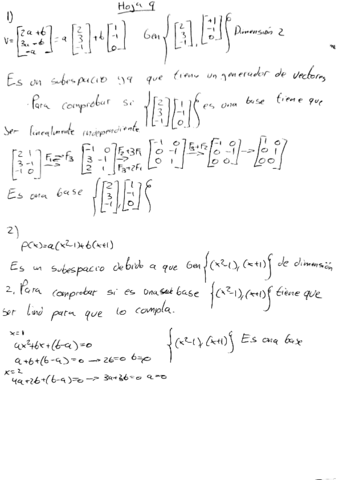 Hoja 9
1)
V=[2a+b 3a-b -a]=a[2 3 -1]+b[1 -1 0] Gen{[2 3 -1],[+1 -1 0]} Dimensión 2
Es un subespacio ya que tiene un generador de vectores
Para comprobar si {[2 3 -1][1 -1 0]} es una base tiene que
ser linealmente independiente
[2 1 3 -1 -1 0] F1↔F3 [-1 0 3 -1 2 1] F2+3F1 F3+2F1 [-1 0 0 -1 0 1] F3+F2 [-1 0 0 -1 0 0] → [1 0 0 1 0 0]
Es una base {[2 3 -1],[1 -1 0]}
2)
p(x)=a(x²-1)+b(x+1)
Es un subespacio debido a que Gen{(x²-1),(x+1)} de dimensión
2, Para comprobar si es una base {(x²-1),(x+1)} tiene que
ser lind para que lo cumpla.
x=1
ax²+bx+(b-a)=0 {(x²-1),(x+1)} Es una base
a+b+(b-a)=0 → 2b=0 b=0
x=2
4a+2b+(b-a)=0 → 3a+3b=0 a=0